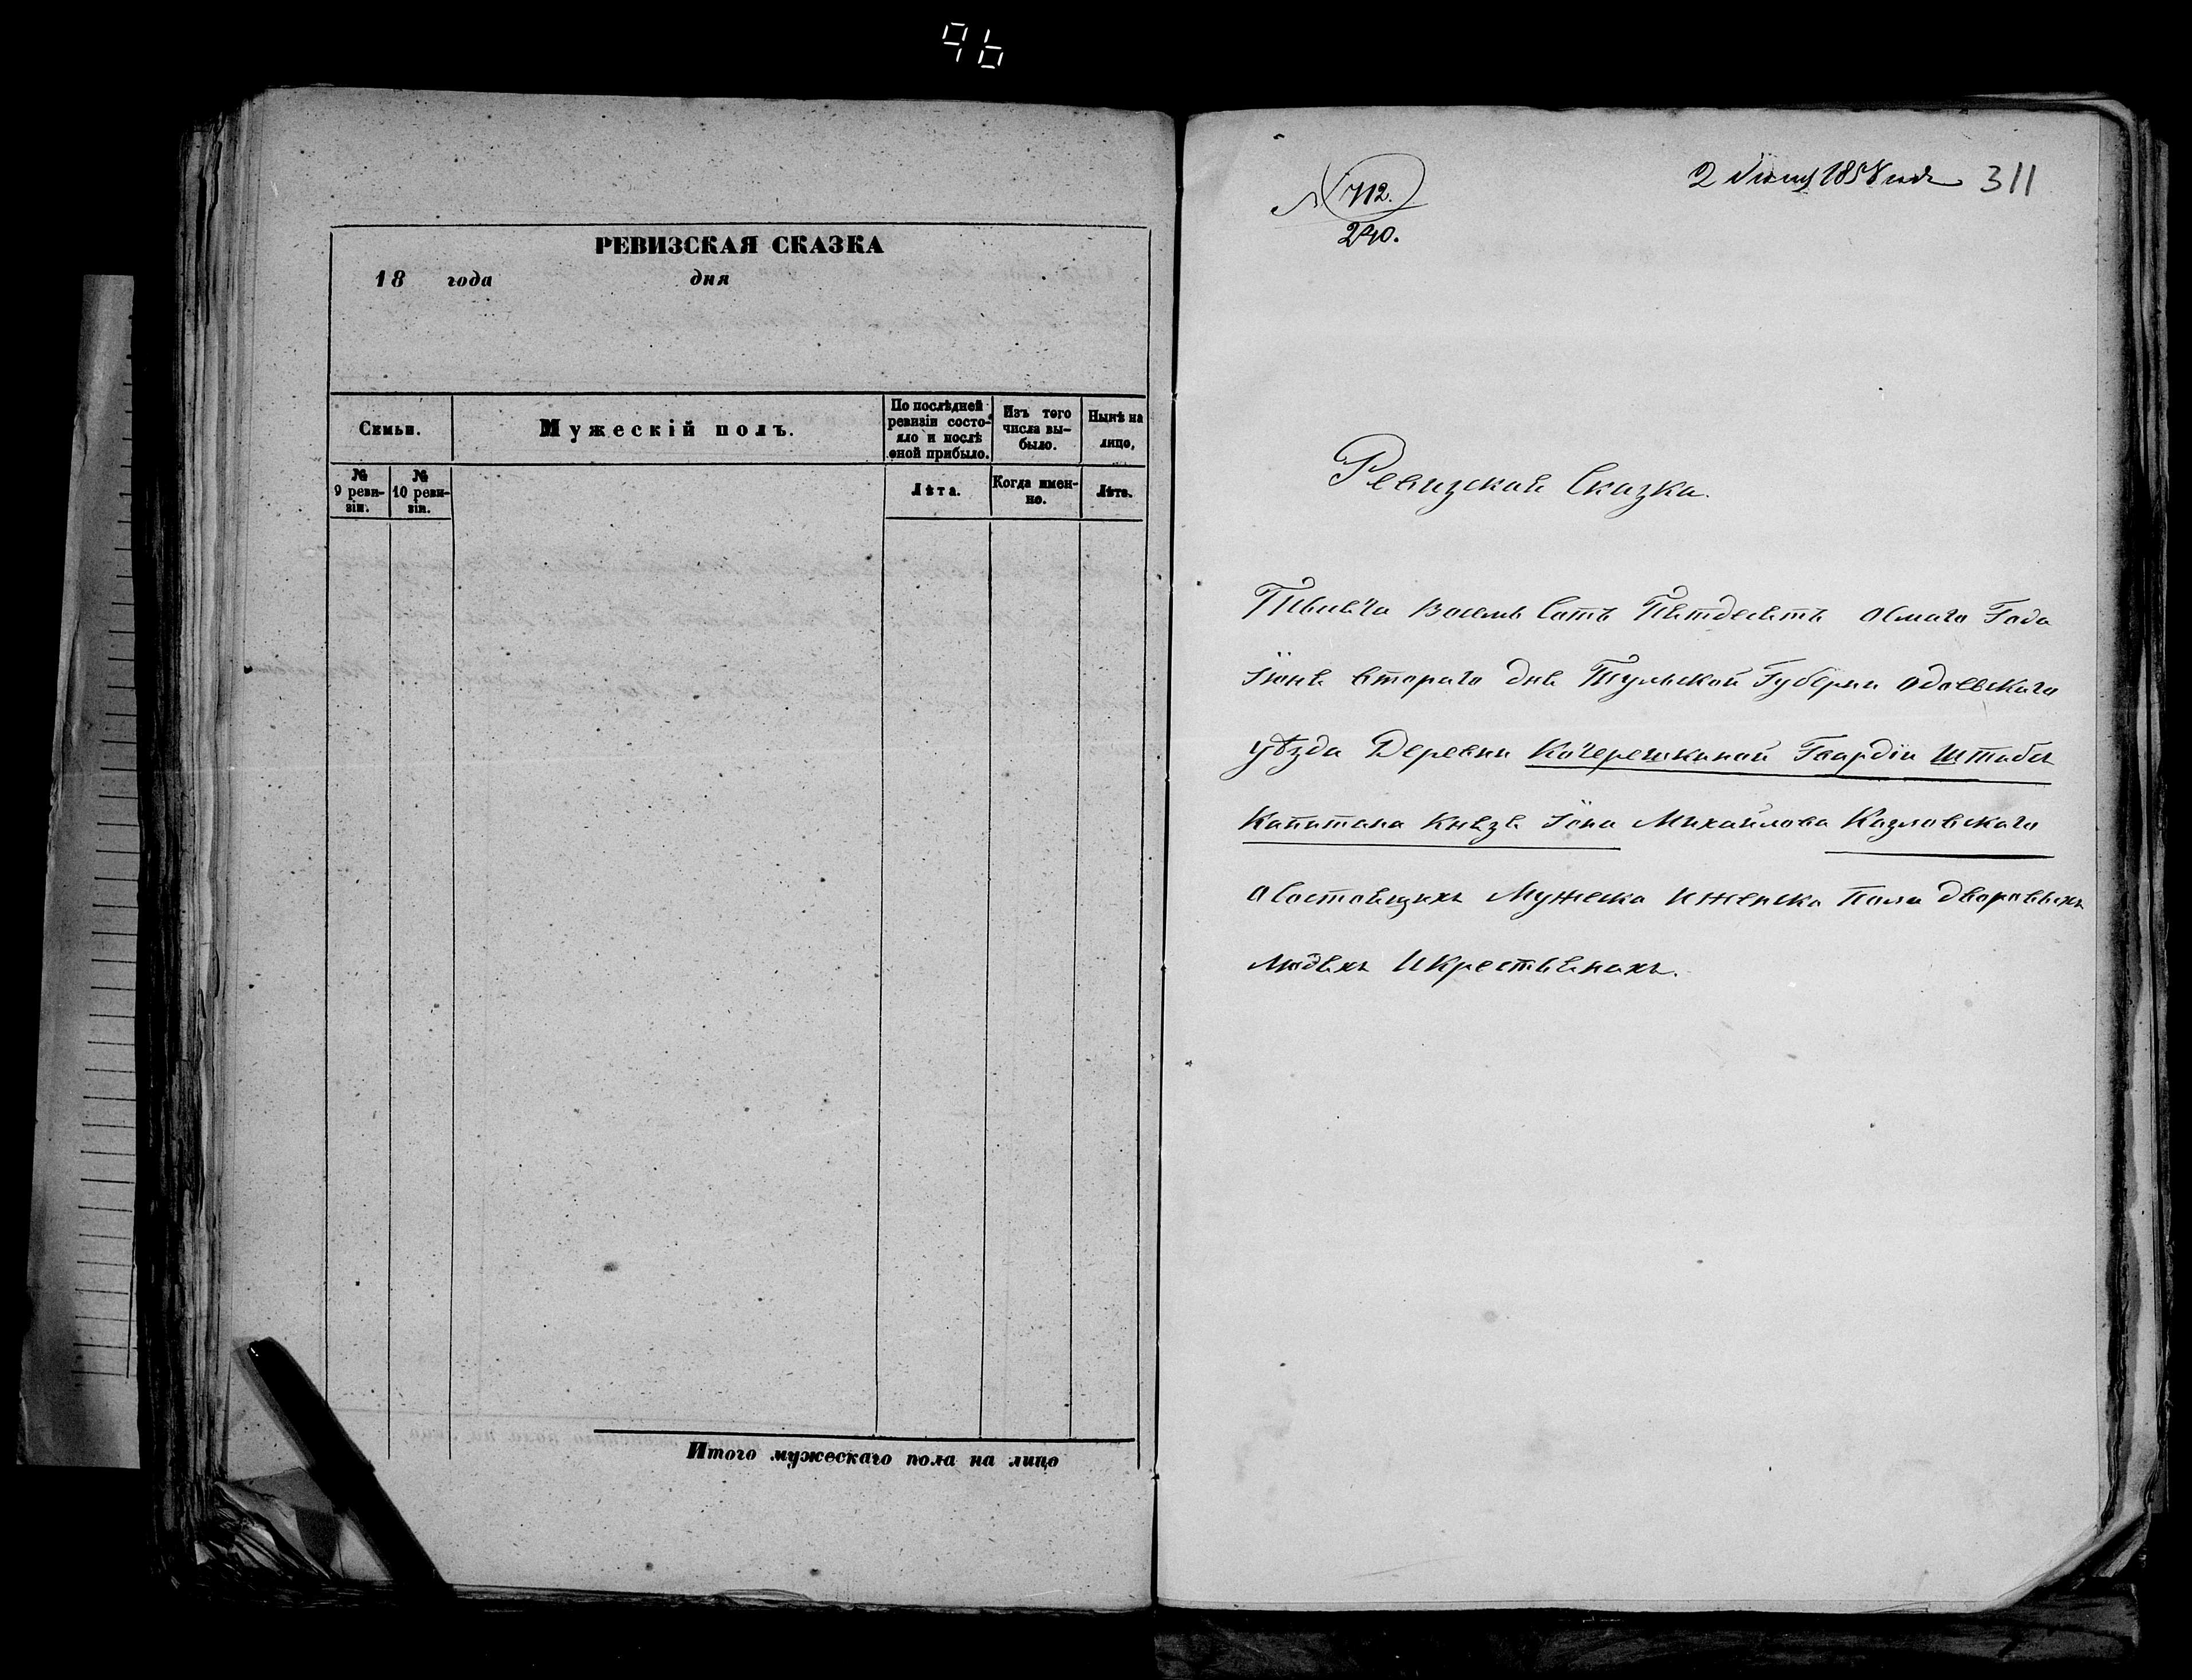 96
РЕВИЗСКАЯ СКАЗКА
18 года дня
Семьи.
Мужескій полъ.
По послѣдней ревизіи состояло и послѣ оной прибыло.
Изъ того числа выбыло.
Нынѣ на лицо.
№ 9 ревизіи.
№ 10 ревизіи.
Лѣта.
Когда именно.
Лѣта.
Итого мужескаго пола на лицо
№ 712.
240.
2 Іюня 1858 года 311
Ревизская Сказка.
Тысяча Восемь Сотъ Пятдесятъ Осмаго Года
Іюня втораго дня Тульской Губерни Одоевскаго
уѣзда Деревни Кочерешкиной Гвардіи Штабсъ
Капитана Князя Іона Михайлова Козловскаго
о Состоящихъ Мужеска И женска Пола дворовыхъ
людяхъ И Крестьянахъ.